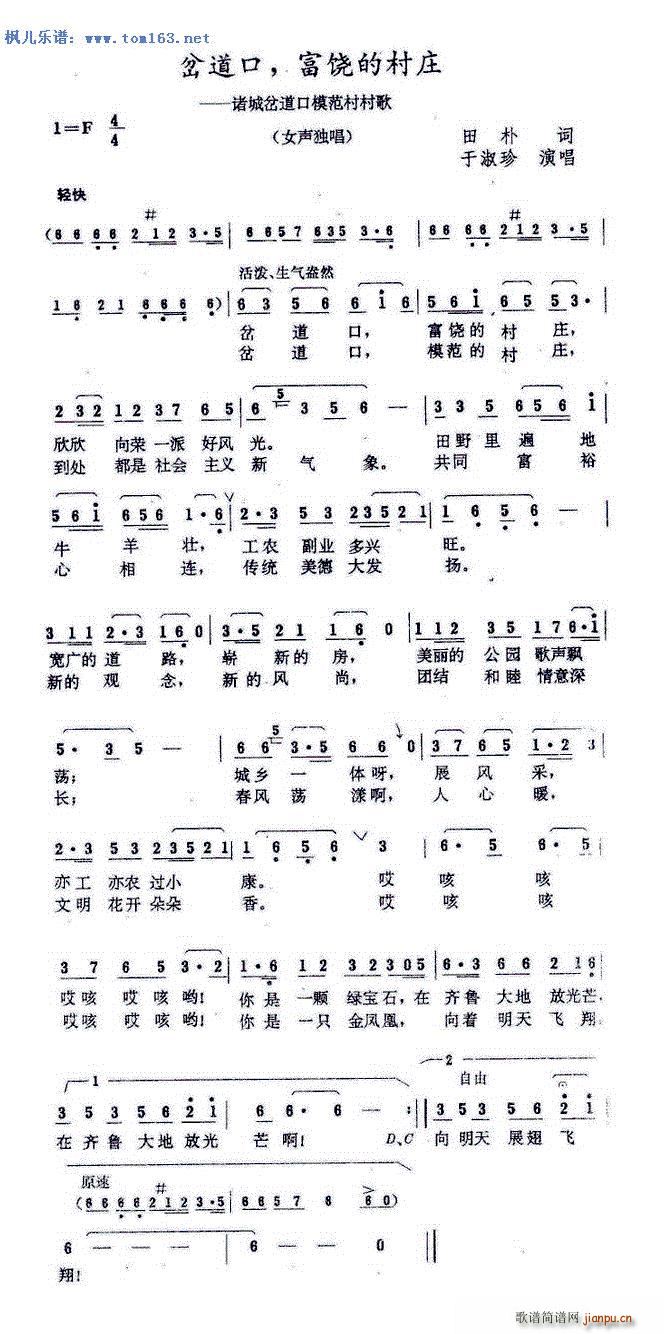 枫儿乐谱：www.tom163.net
岔道口，富饶的村庄
——诸城岔道口模范村村歌
1=F 4/4
（女声独唱）
田 朴 词
于淑珍 演唱
轻快
(6 6 6 6 2 1 2 3·5 | 6 6 5 7 6 3 5 3·6 | 6 6 6 6 2 1 2 3·5
活泼、生气盎然
1 6 2 1 6 6 6 6) | 6 3 5 6 6 i 6 | 5 6 i 6 5 5 3·
岔 道 口， 富饶的 村 庄，
岔 道 口， 模范的 村 庄，
2 3 2 1 2 3 7 6 5 | 6 5 3 5 6 — | 3 3 5 6 5 6 i
欣欣 向荣 一派 好风 光。 田野 里 遍 地
到处 都是 社会 主义 新 气 象。 共同 富 裕
5 6 i 6 5 6 1·6 | 2·3 5 3 2 3 5 2 1 | 1 6 5 6 —
牛 羊 壮， 工农 副业 多兴 旺。
心 相 连， 传统 美德 大发 扬。
3 1 1 2·3 1 6 0 | 3·5 2 1 1 6 0 | 1 1 2 3 5 1 7 6·i
宽广的 道 路， 崭 新的 房， 美丽的 公园 歌声飘
新的 观 念， 新的 风 尚， 团结 和睦 情意深
5· 3 5 — | 6 6 5 3·5 6 6 0 | 3 7 6 5 1·2 3
荡； 城乡 一 体呀， 展 风 采，
长； 春风 荡 漾啊， 人 心 暖，
2·3 5 3 2 3 5 2 1 | 1 6 5 6 3 | 6· 5 6· 5
亦工 亦农 过小 康。 哎 咳 咳
文明 花开 朵朵 香。 哎 咳 咳
3 7 6 5 3·2 | 1·6 1 2 3 2 3 0 5 | 6·3 6 6 2 1 6
哎咳 哎咳 哟！ 你是 一颗 绿宝石，在 齐鲁 大地 放光芒，
哎咳 哎咳 哟！ 你是 一只 金凤凰， 向着 明天 飞 翔。
1 2
自由
3 5 3 5 6 2 i | 6 6· 6 — :‖ 3 5 3 5 6 2 i
在 齐鲁 大地 放光 芒啊！ D、C 向 明天 展翅 飞
原速
(6 6 6 6 2 1 2 3·5 | 6 6 5 7 6 6 0)
6 — — — | 6 — — 0 ‖
翔！
歌谱简谱网 jianpu.cn